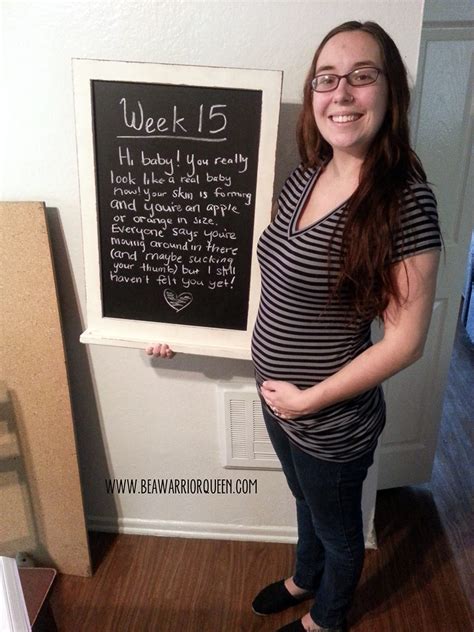 Week 15
Hi baby! You really
look like a real baby
now! Your skin is forming
and you're an apple
or orange in size.
Everyone says you're
moving around in there
(and maybe sucking
your thumb) but I still
haven't felt you yet!
WWW.BEAWARRIORQUEEN.COM